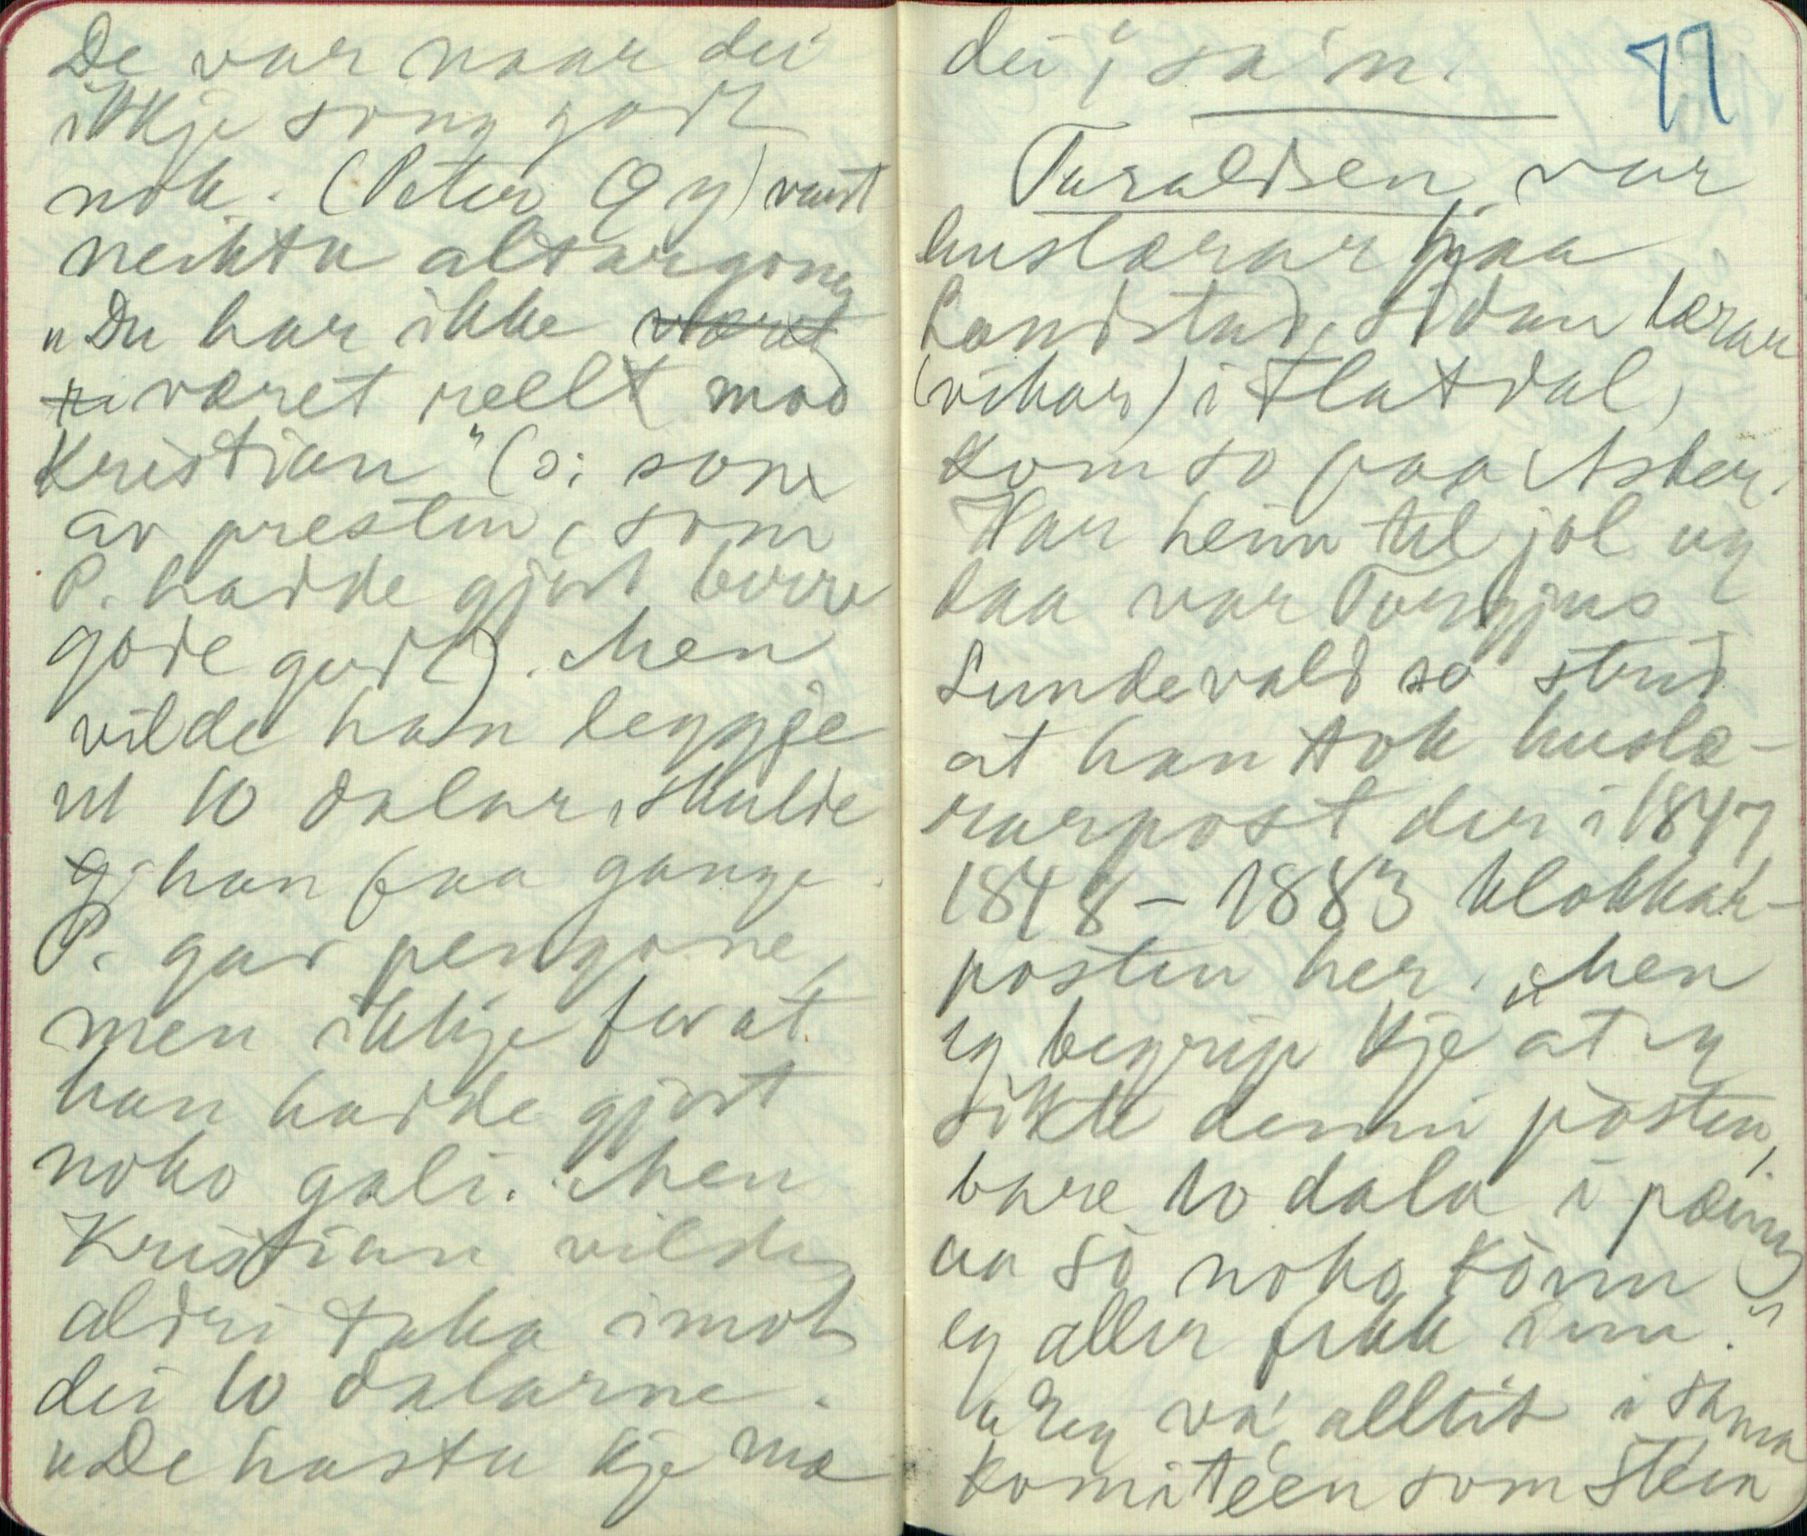 De var naar dei
ikkje song godt
nok. (Peter Øy) vart
neikta altargong
"Du har ikke været
været reellt mod
Kristian" (ɔ: sone
av presten, som
P. hadde gjort berre
gode godt). Men
vilde han leggje
ut 10 dalar, skulde
han faa gange.
P. gav pengane,
men ikkje for at
han hadde gjort
noko gali. Men
Kristian vilde
aldri taka imot
dei 10 dalarne.
"De hasta kje mæ
dei", sa'n.
77
Taraldsen var
huslærar paa
Landstad, sidan lærar
(vikar) i Flatdal,
kom so paa Asker.
Var heim til jol og
daa var Torgjus
Sundevald so strid
at han tok huslæ-
rarpost der i 1847
1848 – 1883 klokkar-
posten her. "Men
eg begrip kje at eg
sikte denni posten,
bare 10 dala i pæing
aa so noko könn
eg aller fekk inn."
"Eg va' alltit i sama
komitéen som Stein